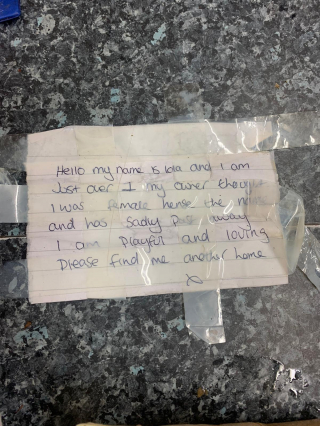 Hello my name is lola and I am
Just over 1 my owner thought
I was female hense the name
and has sadly away
I am Playful and loving
Please find me another home
x